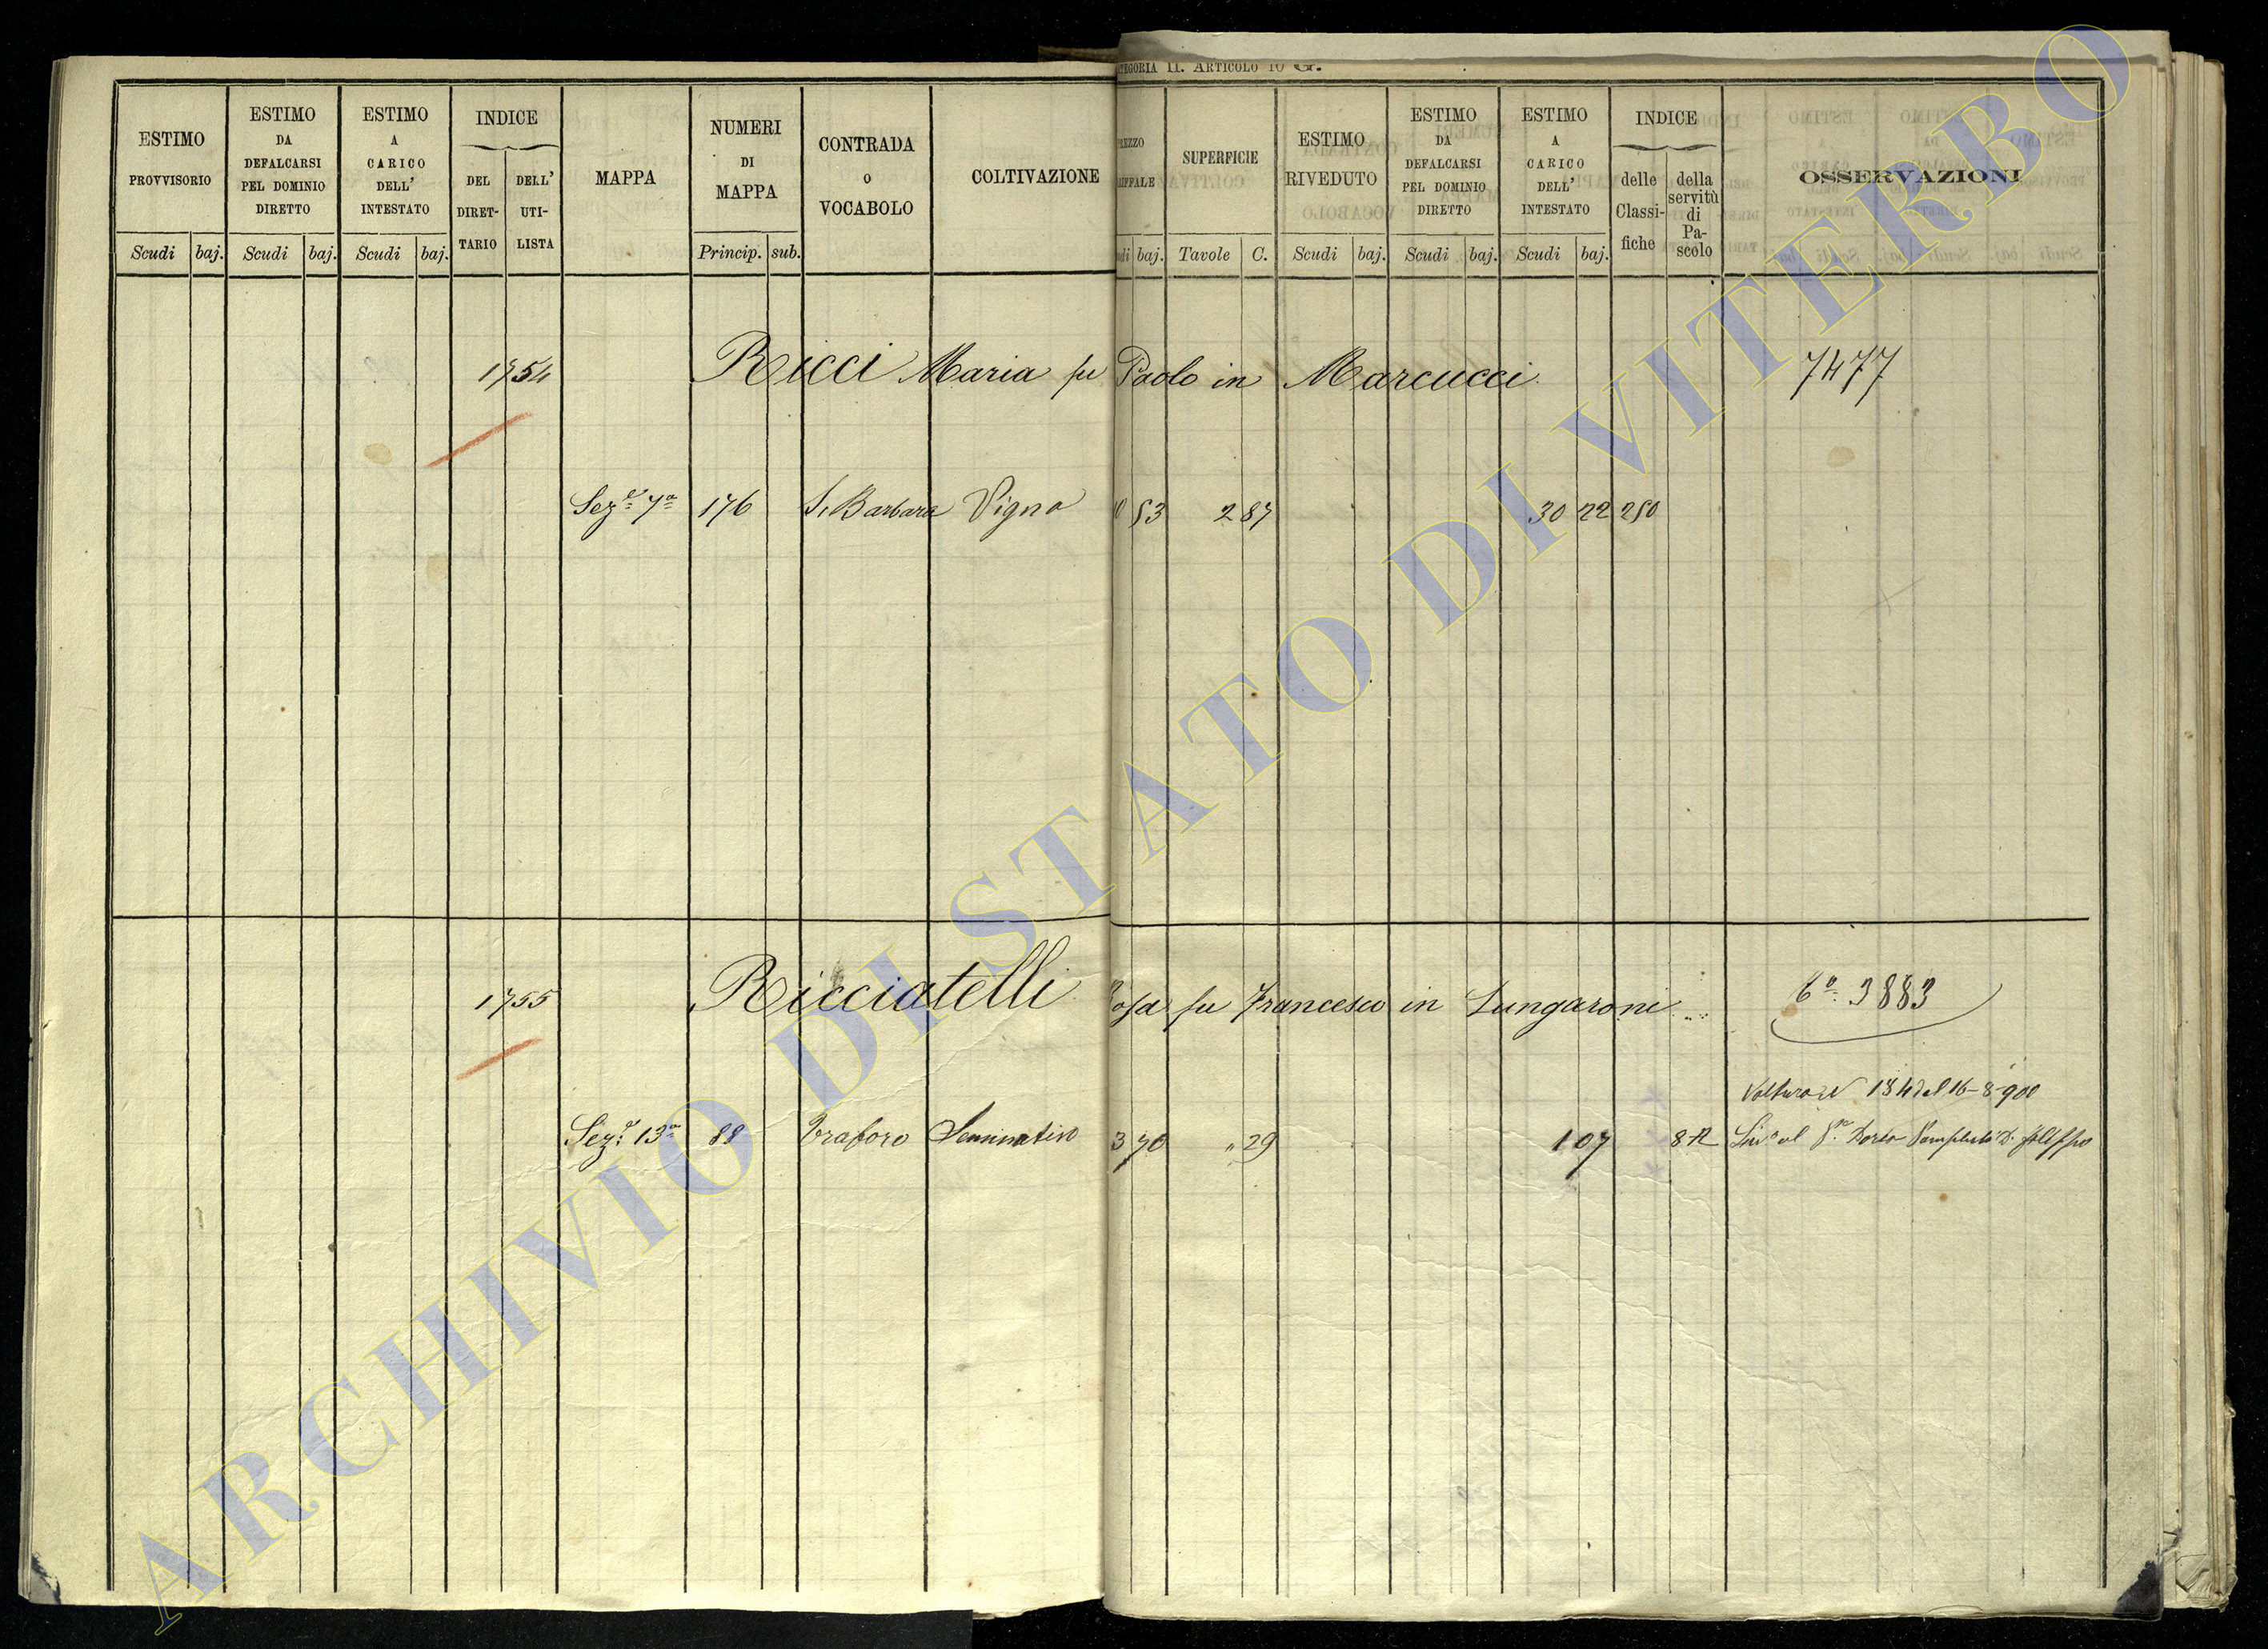 CATEGORIA II. ARTICOLO 10 G.
ESTIMO PROVVISORIO
Scudi baj.
ESTIMO DA DEFALCARSI PEL DOMINIO DIRETTO
Scudi baj.
ESTIMO A CARICO DELL' INTESTATO
Scudi baj.
INDICE
DEL DIRET-TARIO
DELL' UTI-LISTA
MAPPA
NUMERI DI MAPPA
Princip. sub.
CONTRADA O VOCABOLO
COLTIVAZIONE
baj.
SUPERFICIE
Tavole C.
ESTIMO RIVEDUTO
Scudi baj.
ESTIMO DA DEFALCARSI PEL DOMINIO DIRETTO
Scudi baj.
ESTIMO A CARICO DELL' INTESTATO
Scudi baj.
INDICE
delle Classi-fiche
della servitù di Pa-scolo
OSSERVAZIONI
1754 Ricci Maria fu Paolo in Marcucci 7477
Sez.e 7a 176 S. Barbara Vigna 53 2 87 30 22 250
1755 Ricciatelli Rosa fu Francesco in Lungaroni 3883
Voltura N 134 del 16-8-900
Sez.e 13a 88 Traforo Seminativo 3 70 " 29 1 07 8 R
ARCHIVIO DI STATO DI VITERBO